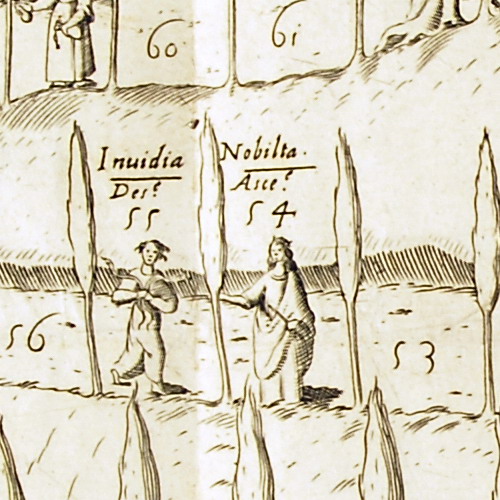 60
61
Inuidia
Des.e
55
Nobilta.
Asce.e
54
56
53